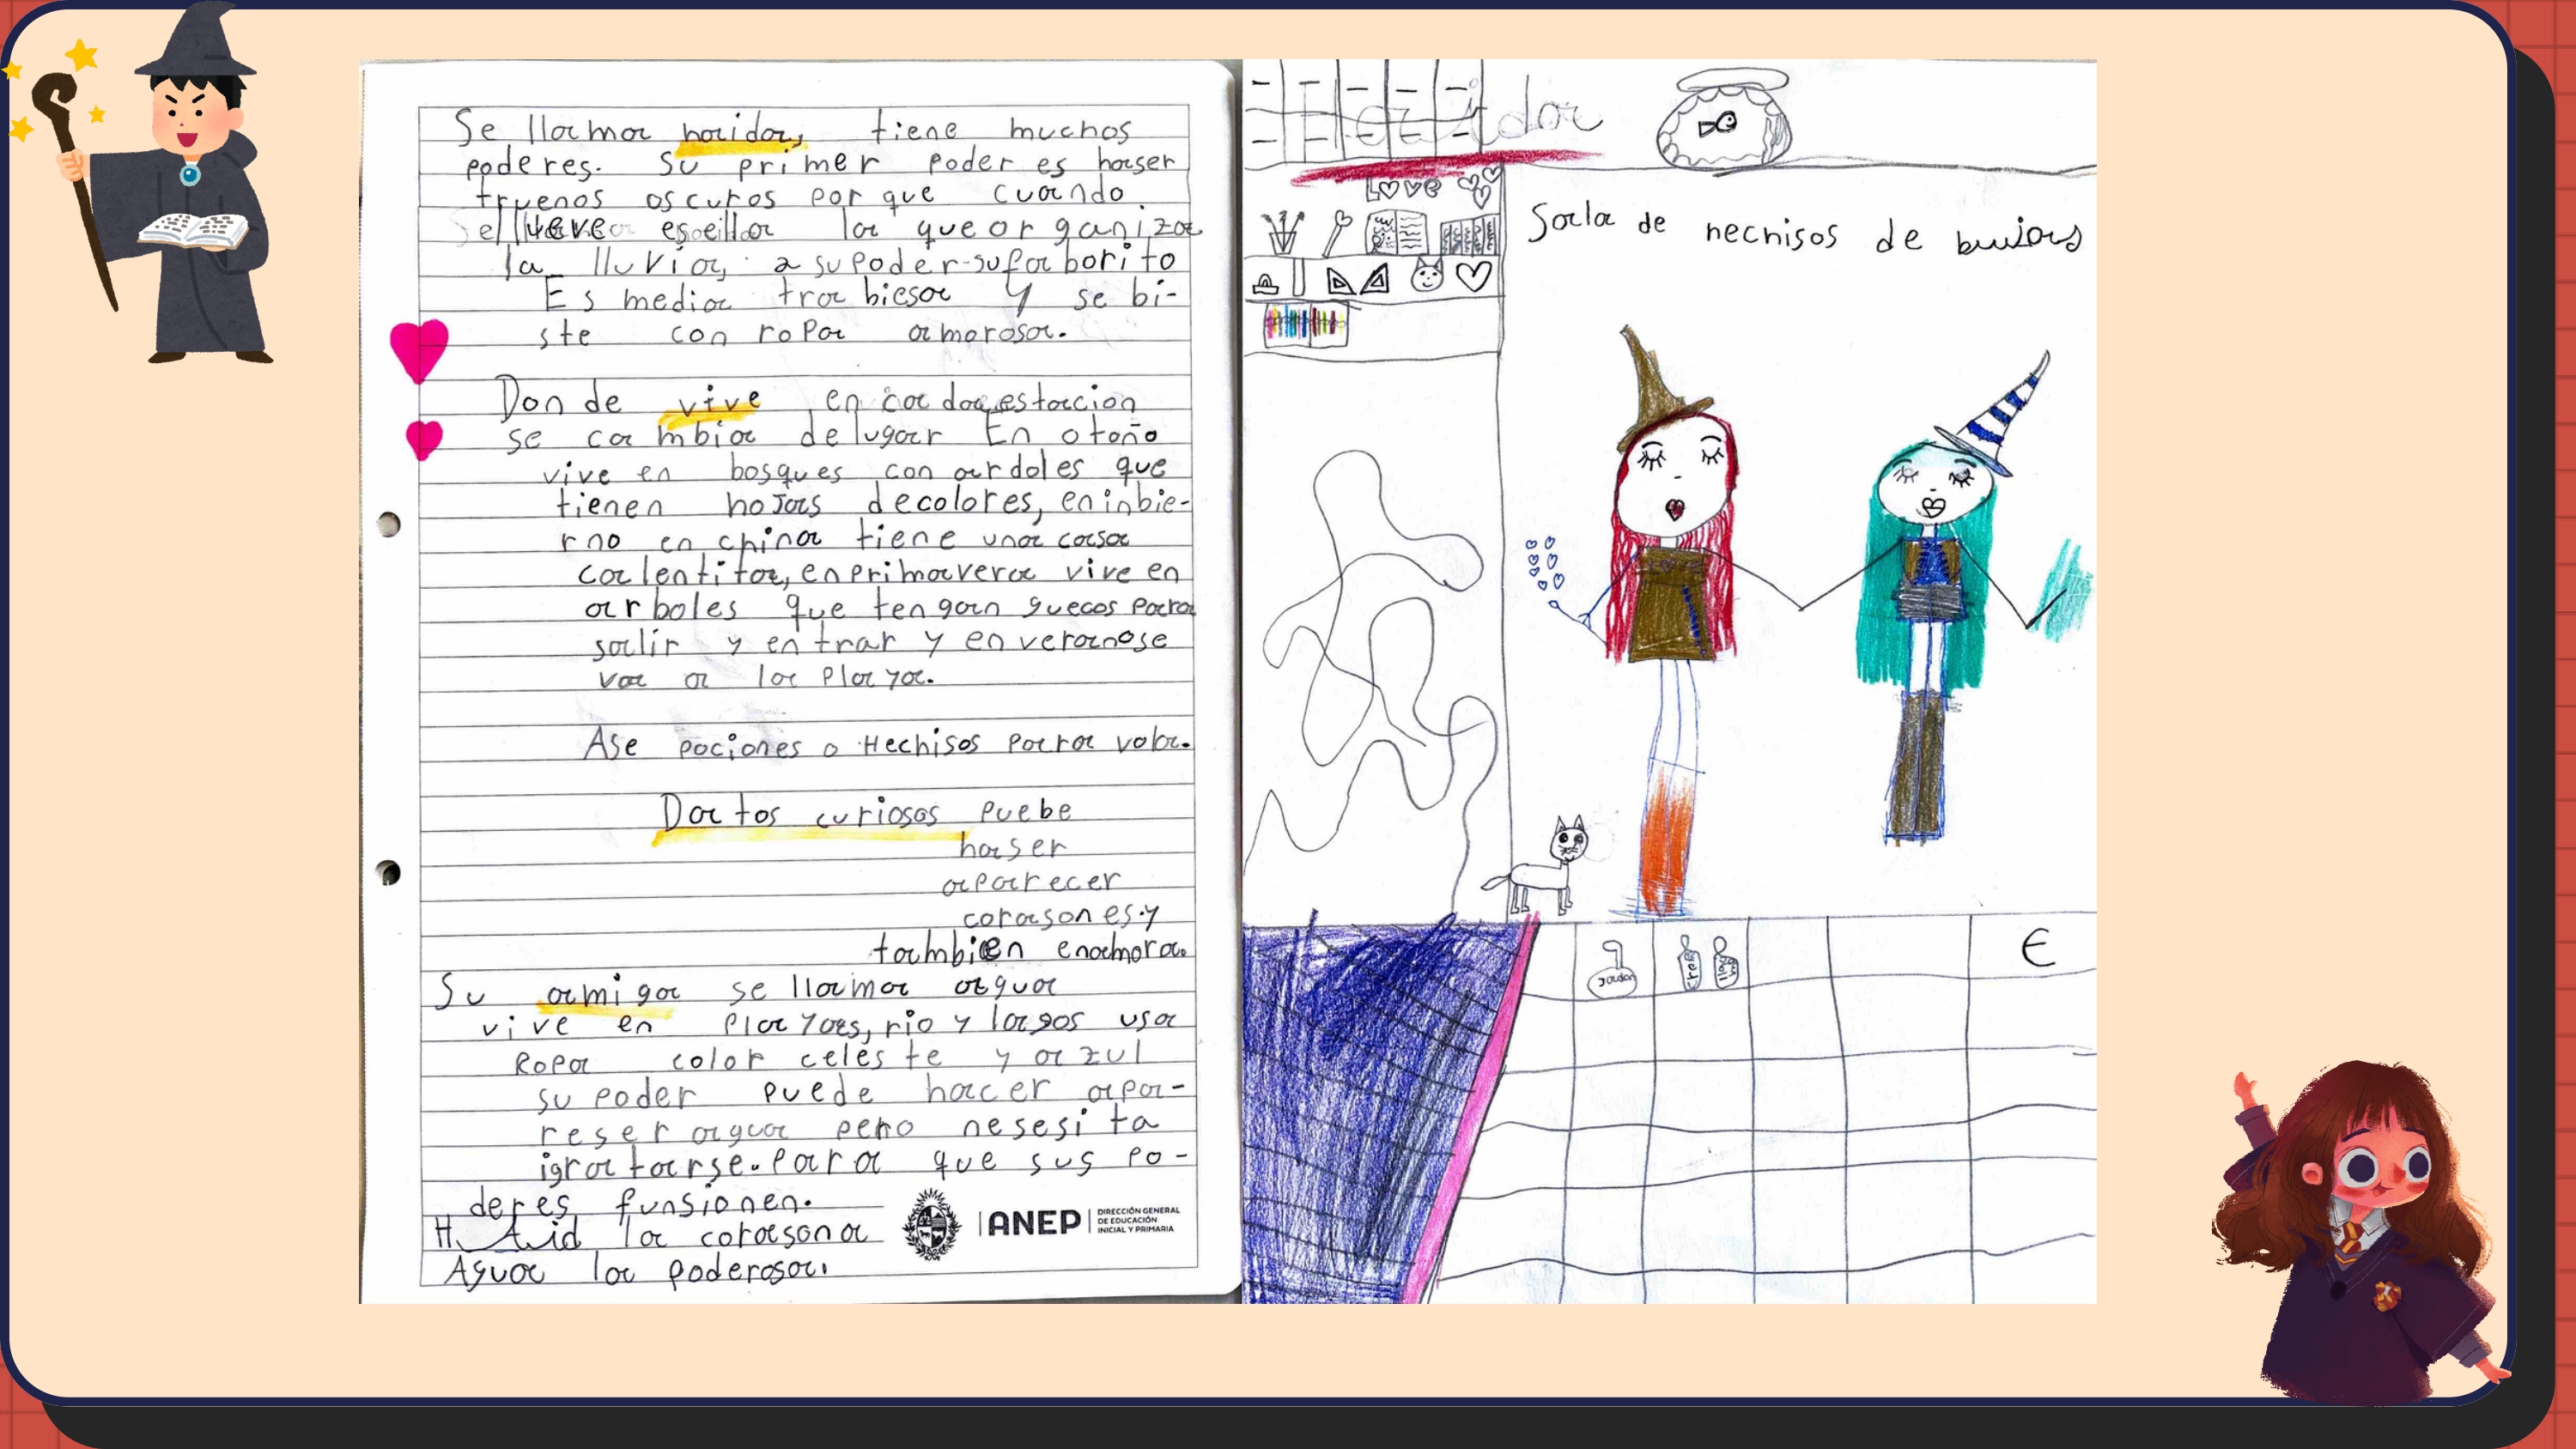 Se llama haida, tiene muchos
poderes. Su primer poder es haser
truenos oscuros por que cuando
llueve es ella la que organiza
la lluvia, a su poder su faborito
Es media trabiesa y se bi-
ste con ropa amorosa.
Donde vive en cada estacion
se cambia de lugar En otoño
vive en bosques con ardoles que
tienen hojas de colores, en inbie-
rno en china tiene una casa
calentita, en primavera vive en
arboles que tengan guecos para
salir y entrar y en verano se
va a la playa.
Ase pociones o Hechisos para vola.
Datos curiosos puebe
haser
aparecer
corasones y
tambien enamora.
Su amiga se llama agua
vive en playas, rio y lagos usa
Ropa color celeste y azul
su poder puede hacer apa-
reser agua pero nesesita
igratarse. para que sus po-
deres funsionen.
la corasona
Agua la poderosa.
ANEP
DIRECCIÓN GENERAL
DE EDUCACIÓN
INICIAL Y PRIMARIA
Love
Sala de hechisos de brujas
€